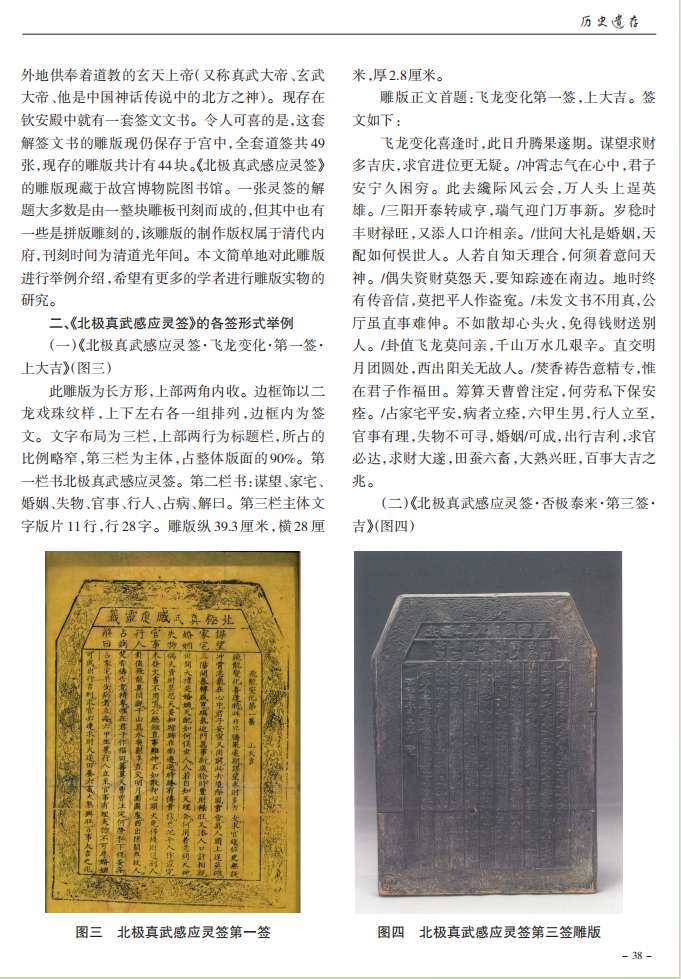 历史遗存
外地供奉着道教的玄天上帝(又称真武大帝、玄武
大帝、他是中国神话传说中的北方之神)。现存在
钦安殿中就有一套签文文书。令人可喜的是,这套
解签文书的雕版现仍保存于宫中,全套道签共49
张,现存的雕版共计有44块。《北极真武感应灵签》
的雕版现藏于故宫博物院图书馆。一张灵签的解
题大多数是由一整块雕板刊刻而成的,但其中也有
一些是拼版雕刻的,该雕版的制作版权属于清代内
府,刊刻时间为清道光年间。本文简单地对此雕版
进行举例介绍,希望有更多的学者进行雕版实物的
研究。
二、《北极真武感应灵签》的各签形式举例
(一)《北极真武感应灵签·飞龙变化·第一签·
上大吉》(图三)
此雕版为长方形,上部两角内收。边框饰以二
龙戏珠纹样,上下左右各一组排列,边框内为签
文。文字布局为三栏,上部两行为标题栏,所占的
比例略窄,第三栏为主体,占整体版面的90%。第
一栏书北极真武感应灵签。第二栏书:谋望、家宅、
婚姻、失物、官事、行人、占病、解曰。第三栏主体文
字版片11行,行28字。雕版纵39.3厘米,横28厘
米,厚2.8厘米。
雕版正文首题:飞龙变化第一签,上大吉。签
文如下:
飞龙变化喜逢时,此日升腾果遂期。谋望求财
多吉庆,求官进位更无疑。/冲霄志气在心中,君子
安宁久困穷。此去纔际风云会,万人头上逞英
雄。/三阳开泰转咸亨,瑞气迎门万事新。岁稔时
丰财禄旺,又添人口许相亲。/世间大礼是婚姻,天
配如何悮世人。人若自知天理合,何须着意问天
神。/偶失资财莫怨天,要知踪迹在南边。地时终
有传音信,莫把平人作盗寃。/未发文书不用真,公
厅虽直事难伸。不如散却心头火,免得钱财送别
人。/卦值飞龙莫问亲,千山万水几艰辛。直交明
月团圆处,西出阳关无故人。/焚香祷告意精专,惟
在君子作福田。筹算天曹曾注定,何劳私下保安
痊。/占家宅平安,病者立痊,六甲生男,行人立至,
官事有理,失物不可寻,婚姻/可成,出行吉利,求官
必达,求财大遂,田蚕六畜,大熟兴旺,百事大吉之
兆。
(二)《北极真武感应灵签·否极泰来·第三签·
吉》(图四)
北極真武感應靈籤
謀望
家宅
婚姻
失物
官事
行人
占病
解曰
飛龍變化第一籤 上大吉
图三 北极真武感应灵签第一签
图四 北极真武感应灵签第三签雕版
- 38 -